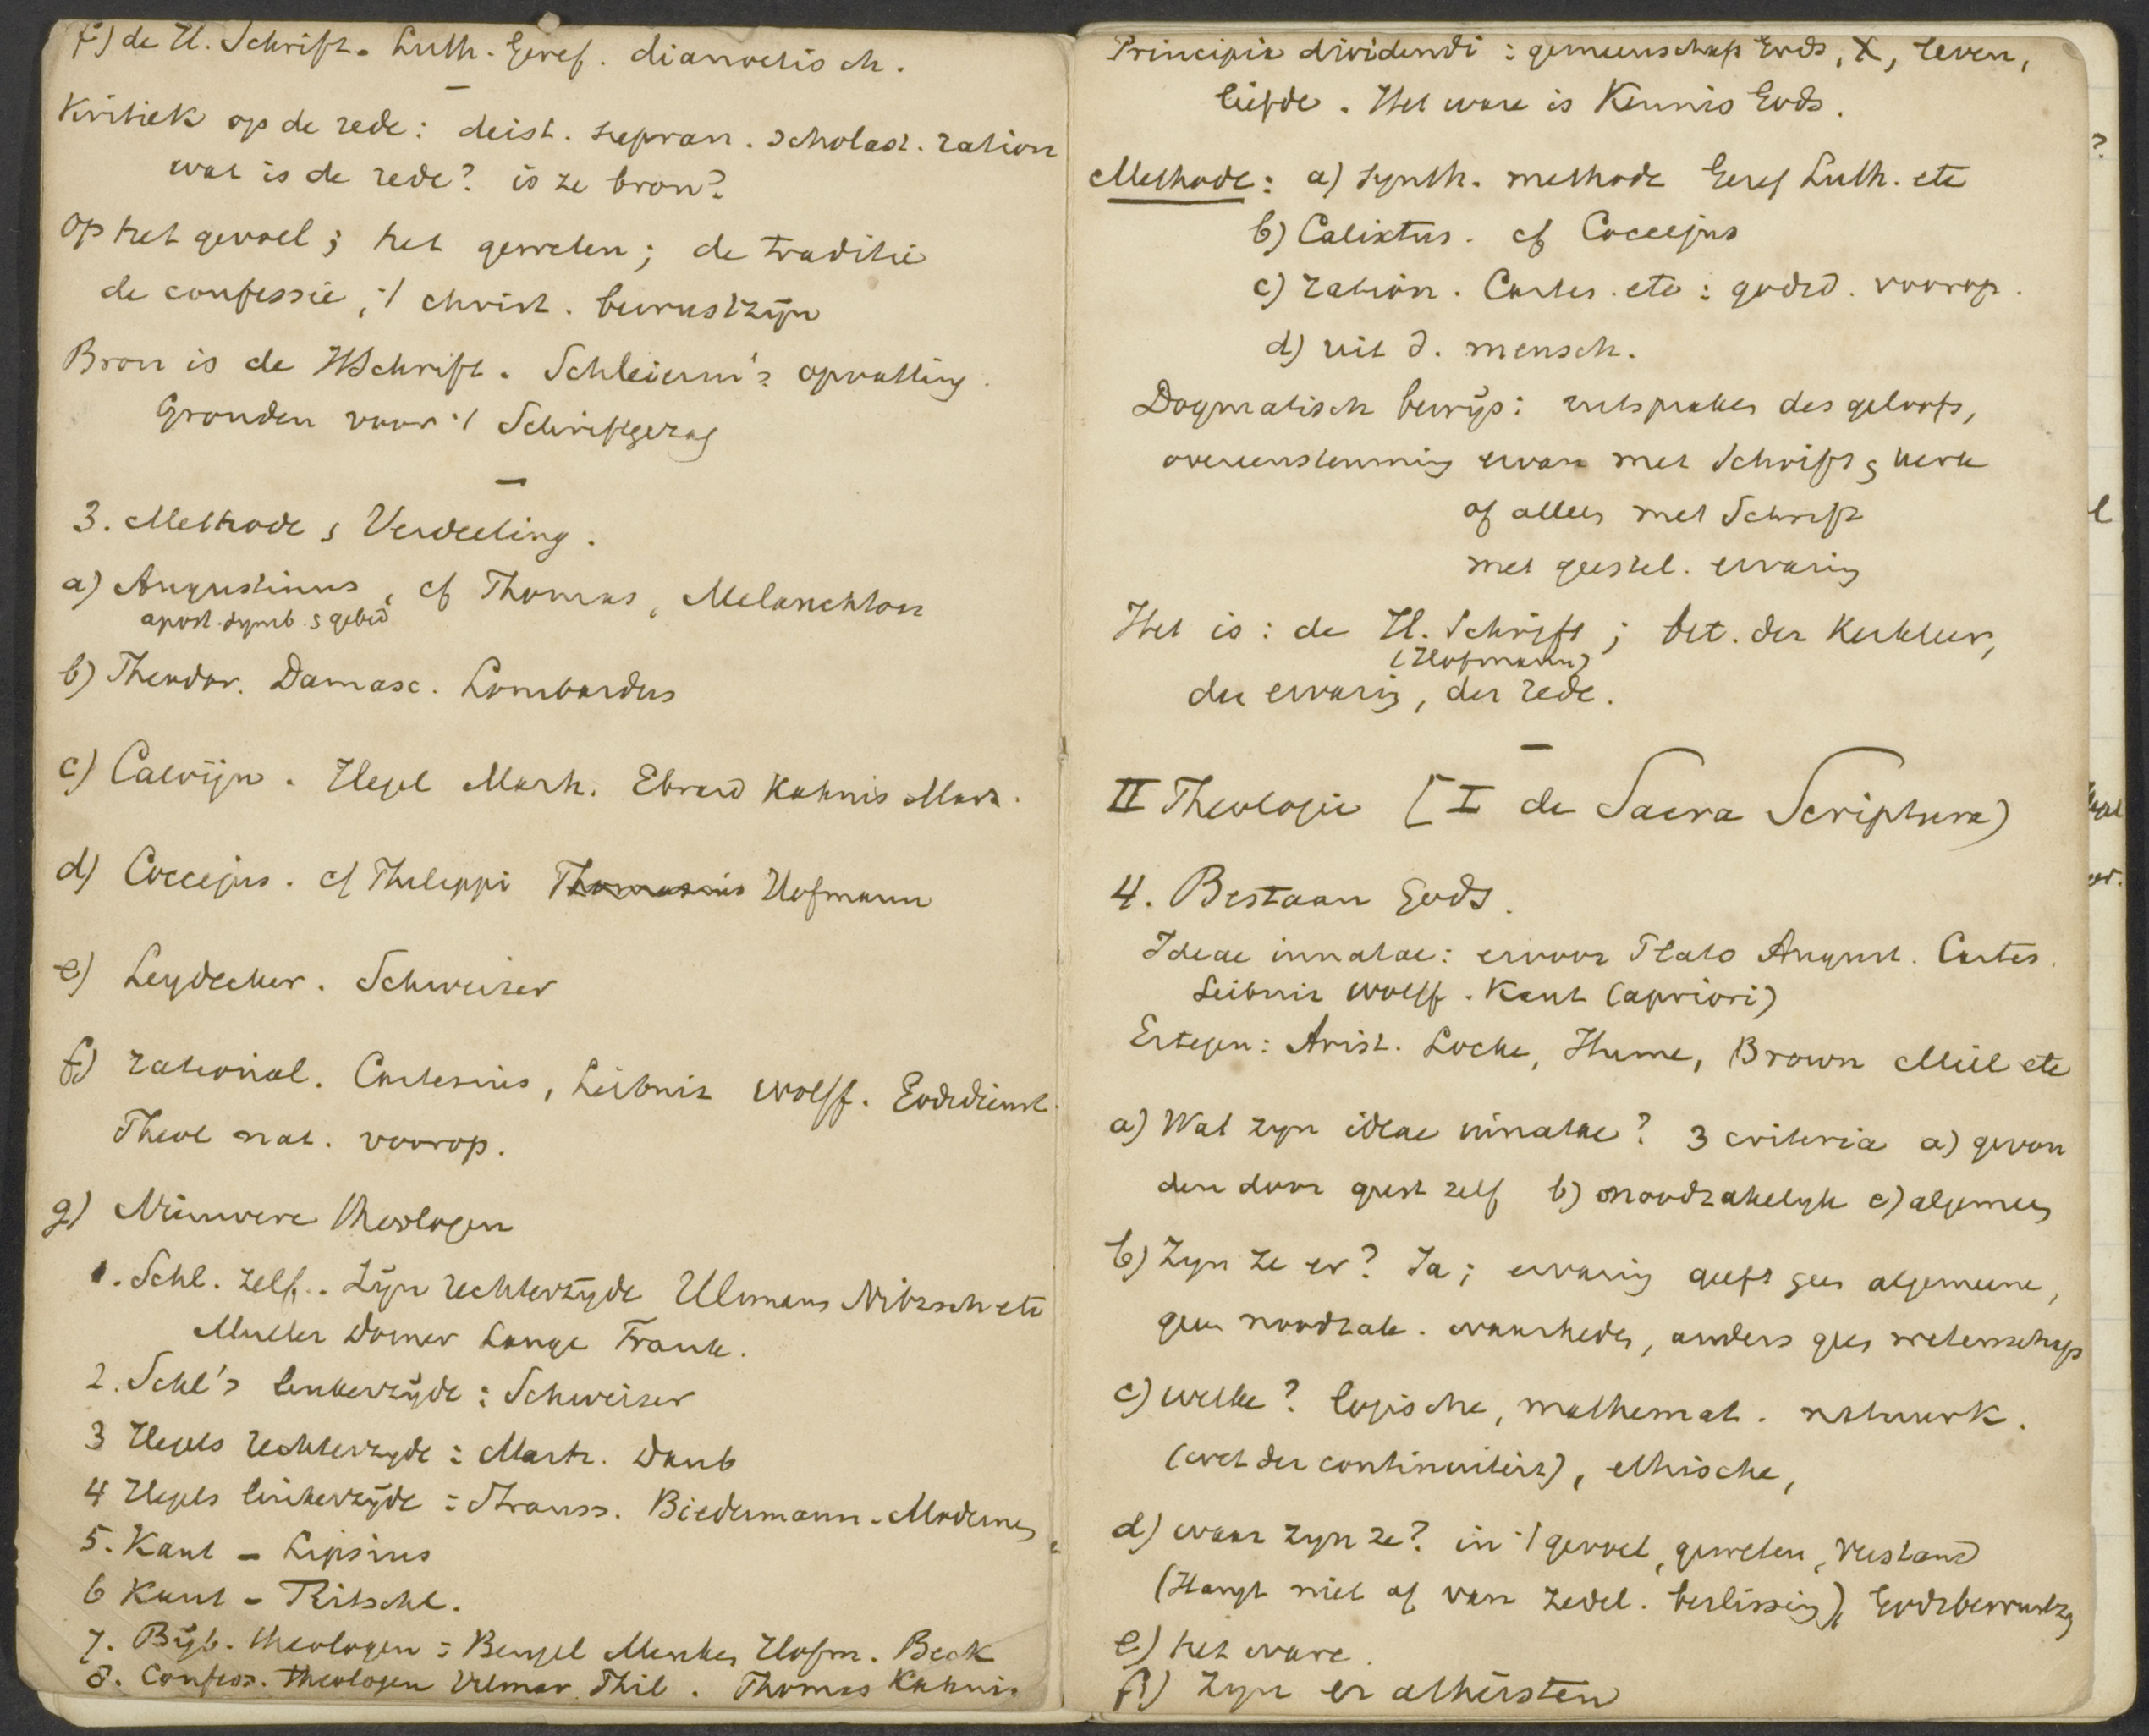 f) de H. Schrift. Luth. Geref. dianoetisch.
Kritiek op de rede: deist. supran. scholast. ration
wat is de rede? is ze bron?
Op het gevoel; het geweten; de traditie
de confessie, 't christ. bewustzijn
Bron is de HSchrift. Schleierm's opvatting.
Gronden voor 't Schriftgezag
3. Methode & Verdeeling.
a) Augustinus, cf Thomas, Melanchton
apost. symb. & gebed
b) Theodor. Damasc. Lombardus
c) Calvijn. Hegel Marh. Ebrard Kahnis Mart.
d) Coccejus. cf Philippi Thomasius Hofmann
e) Leydecker. Schweizer
f) rational. Cartesius, Leibniz Wolff. Godsdienst.
Theol nat. voorop.
g) Nieuwere theologen
1. Schl. zelf. Zijn rechterzijde Ullmans Nitzsch etc
Muller Dorner Lange Frank.
2. Schl's linkerzijde: Schweizer
3 Hegels rechterzyde: Marh. Daub
4 Hegels linkerzijde: Strauss. Biedermann. Modernen
5. Kant - Lipsius
6 Kant - Ritschl.
7. Bijb. theologen: Bengel Menken Hofm. Beck
8. Confess. theologen Vilmar Phil. Thomas Kahnis
Principia dividendi: gemeenschap Gods, X, leven,
liefde. Het ware is Kennis Gods.
Methode: a) synth. methode Geref Luth. etc
b) Calixtus. cf Coccejus
c) ration. Cartes. etc: godsd. voorop.
d) uit d. mensch.
Dogmatisch bewijs: uitspraken des geloofs,
overeenstemming ervan met Schrift & Kerk
of alleen met Schrift
met geestel. ervaring
Het is: de H. Schrift; bet. der Kerkleer,
(Hofmann)
der ervaring, der rede.
II Theologie [I de Sacra Scriptura)
4. Bestaan Gods.
Ideae innatae: ervoor Plato August. Cartes.
Leibniz Wolff. Kant (apriori)
Ertegen: Arist. Locke, Hume, Brown Mill etc
a) Wat zyn ideae innatae? 3 criteria a) gevon
den door geest zelf b) noodzakelyk c) algemeen
b) Zyn ze er? Ja; ervaring geeft geen algemeene,
geen noodzak. waarheden, anders geen wetenschap
c) welke? logische, mathemat. natuurk.
(wet der continuiteit), ethische,
d) waar zyn ze? in 't gevoel, geweten, verstand
(Hangt niet af van zedel. beslissing), Godsbewustz
e) het ware.
f) Zyn er atheisten